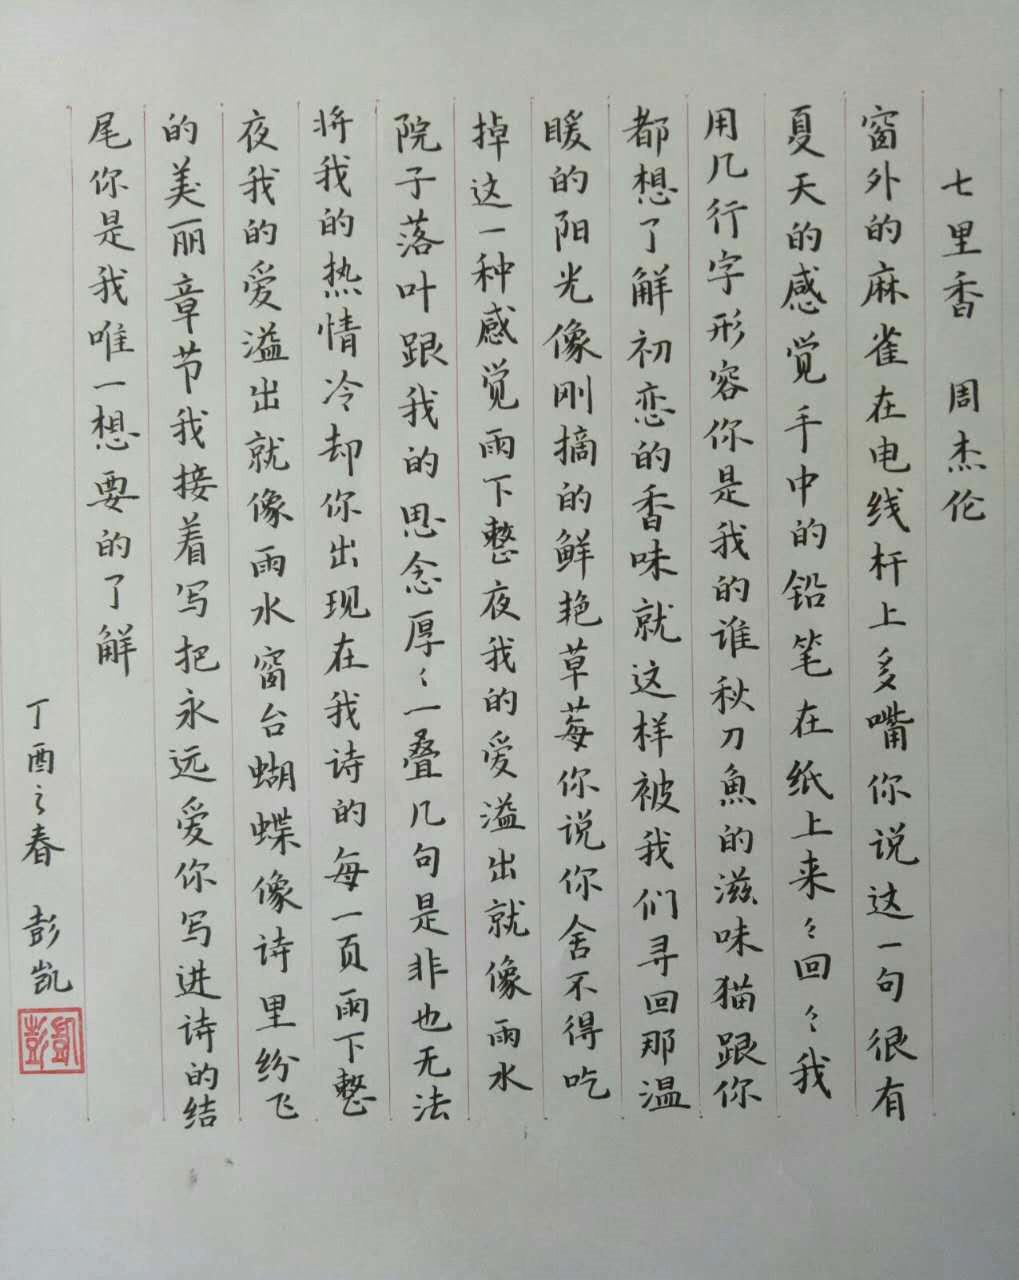 七里香 周杰伦
窗外的麻雀在电线杆上多嘴你说这一句很有
夏天的感觉手中的铅笔在纸上来〻回〻我
用几行字形容你是我的谁秋刀魚的滋味猫跟你
都想了解初恋的香味就这样被我们寻回那温
暖的阳光像刚摘的鲜艳草莓你说你舍不得吃
掉这一种感觉雨下整夜我的爱溢出就像雨水
院子落叶跟我的思念厚〻一叠几句是非也无法
将我的热情冷却你出现在我诗的每一页雨下整
夜我的爱溢出就像雨水窗台蝴蝶像诗里纷飞
的美丽章节我接着写把永远爱你写进诗的结
尾你是我唯一想要的了解
丁酉之春 彭凯
彭凯